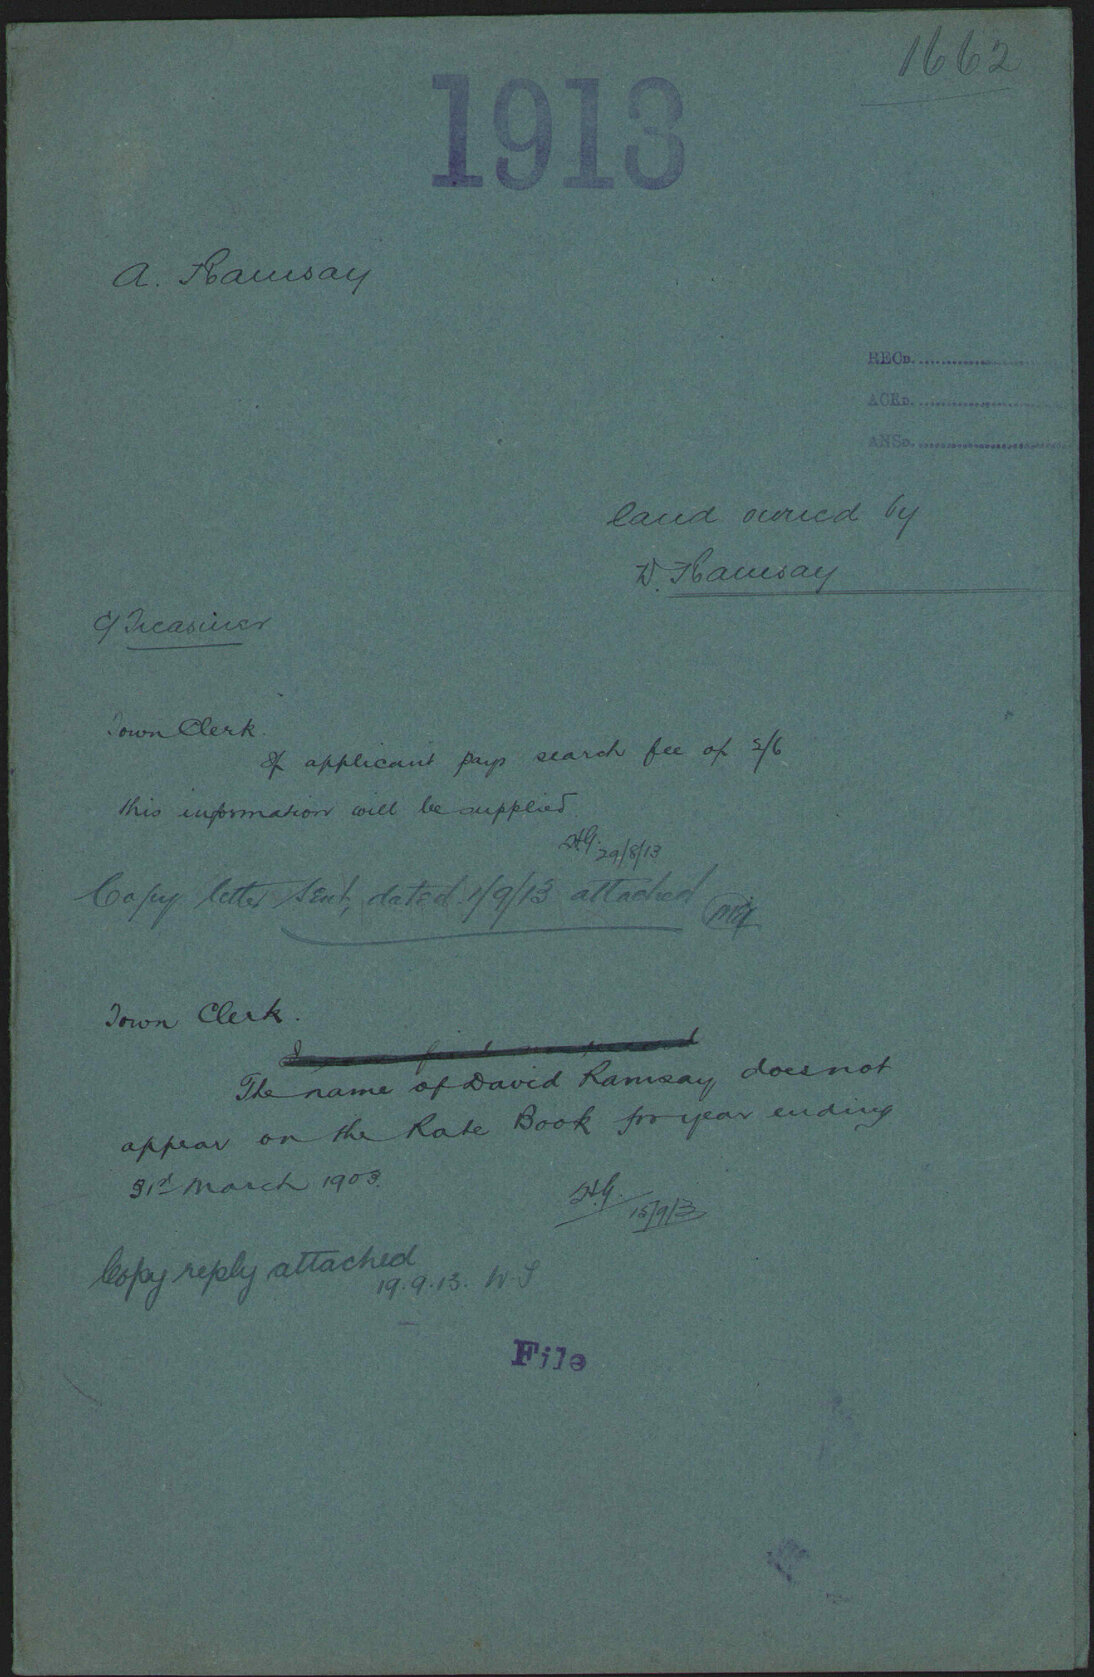 1662
1913
A. Ramsay
RECD.
ACKD.
ANSD.
land owned by
D. Ramsay
C/Treasurer
Town Clerk.
If applicant pays search fee of 2/6
this information will be supplied.
29/8/13
Copy letter sent, dated 1/9/13 attached
Town Clerk.
The name of David Ramsay does not
appear on the Rate Book for year ending
31st March 1903.
15/9/13
Copy reply attached
19.9.13. W.S
File